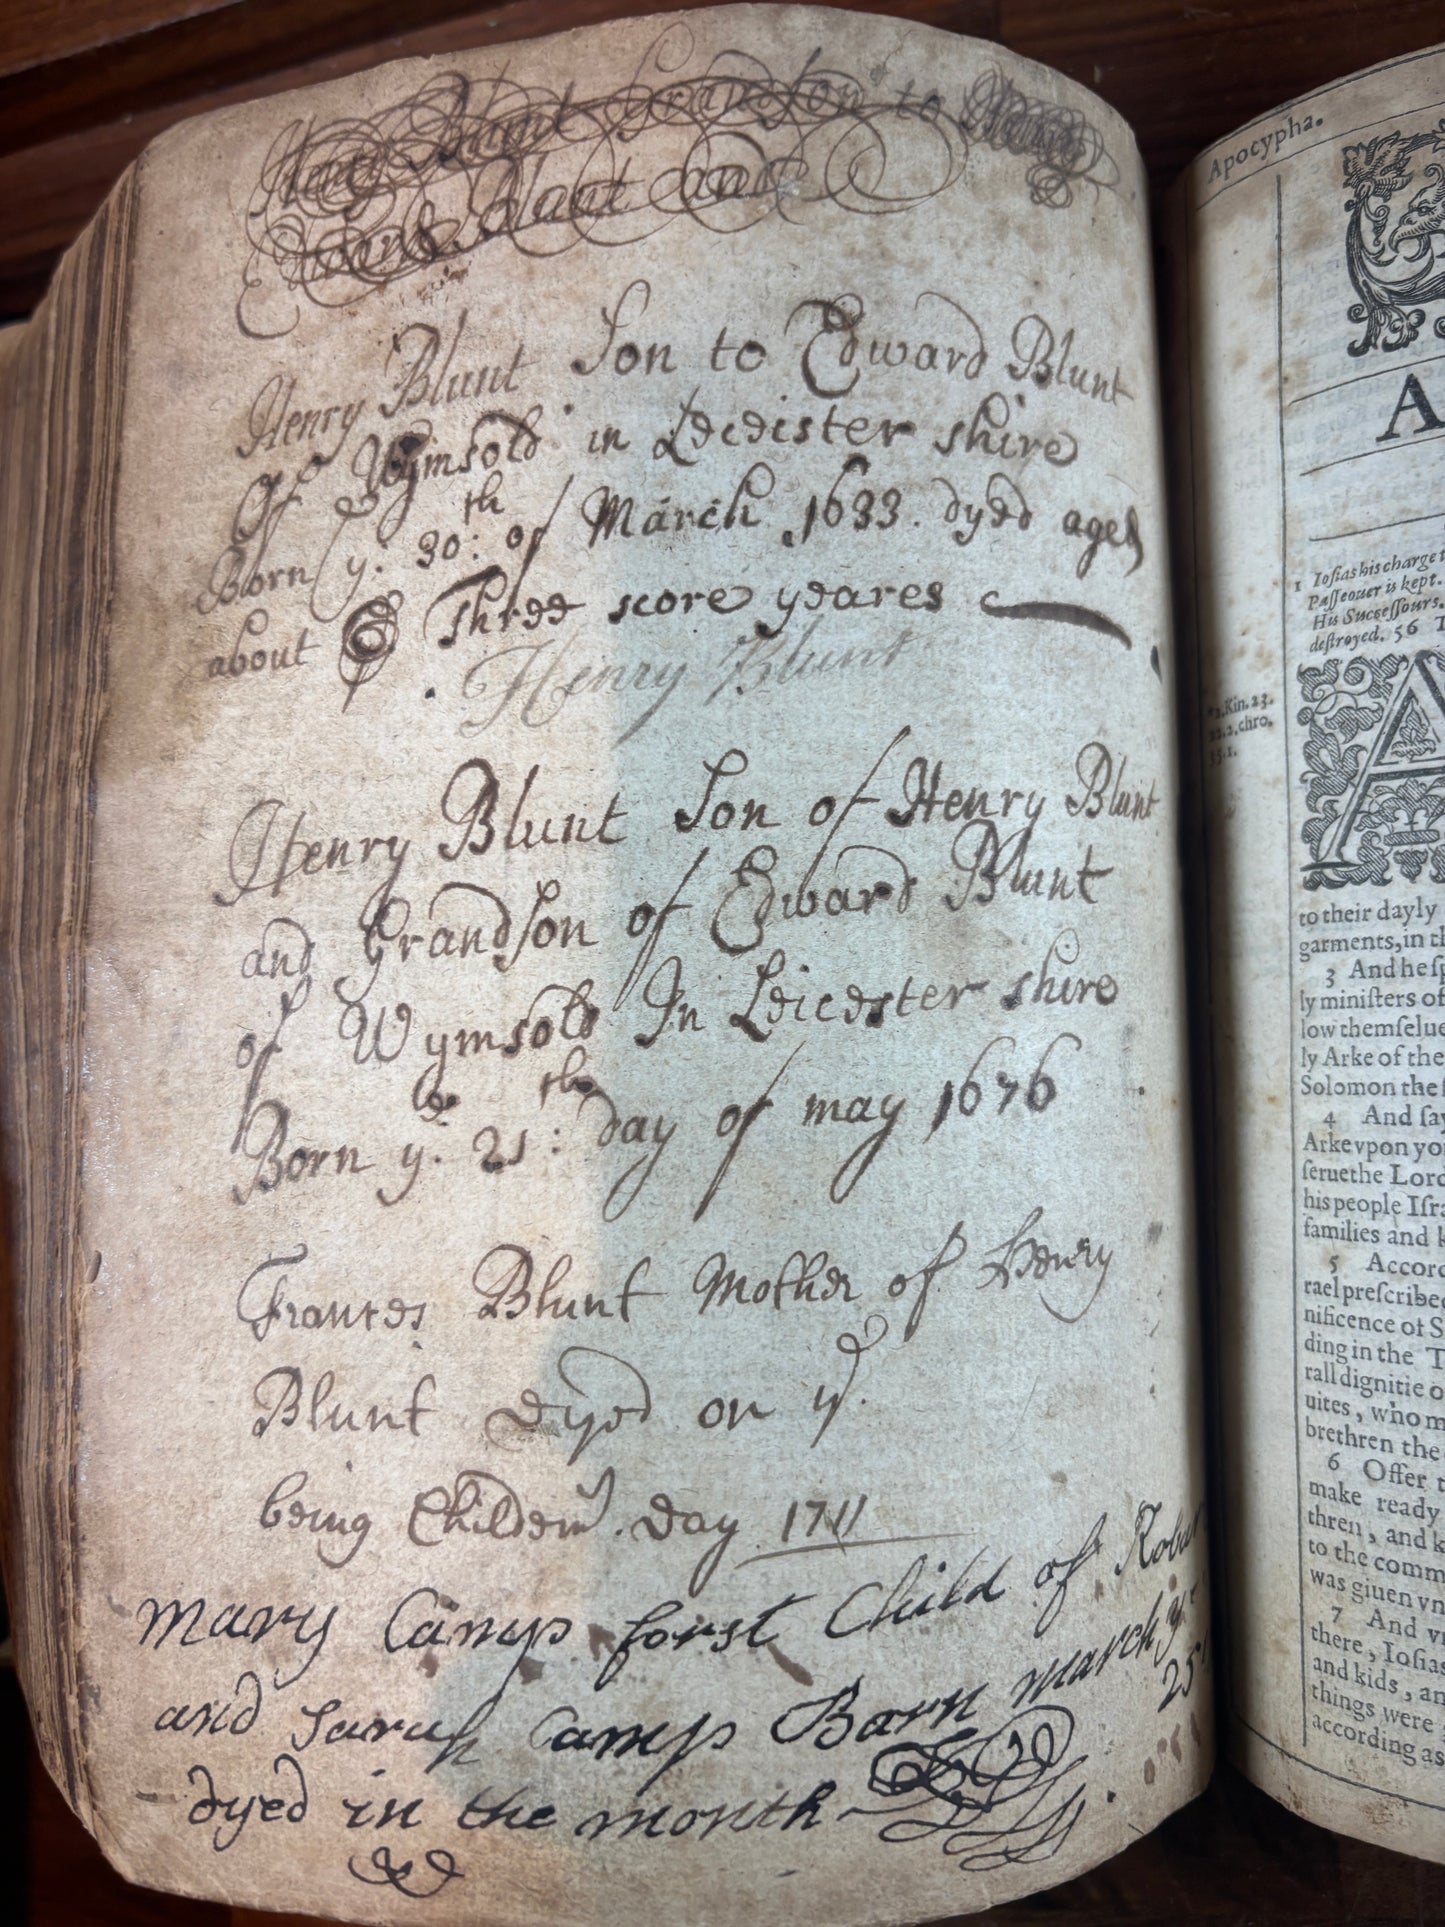 Henry Blunt Grandson to Henry
Edward Blunt and
Henry Blunt Son to Edward Blunt
Of Wymsold in Leicester shire
Born ye. 30th: of March 1633. dyed aged
about Three score yeares
Henry Blunt
Henry Blunt Son of Henry Blunt
and Grandson of Edward Blunt
of Wymsold In Leicester shire
Born ye. 21th: day of may 1676
Frances Blunt Mother of Henry
Blunt Dyed on ye.
being Childerms. Day 1711
Mary Camp forst Child of
and Sarah Camp Born march ye
25
dyed in the month
Apocypha.
A
1 Iosias his charge
Passeouer is kept.
His Successours.
destroyed. 56
2.Kin.23.
2.chro.
35.1.
A
to their dayly
garments, in
3 And he
ly ministers of
low themselue
ly Arke of the
Solomon the
4 And say
Arke vpon
serue the Lord
his people
families and
5
rael prescribed
nificence of
ding in the
rall dignitie
uites, who
brethren the
6 Offer
make ready
thren, and
to the
was giuen
7 And
there, Iosias
and kids,
things were
according as